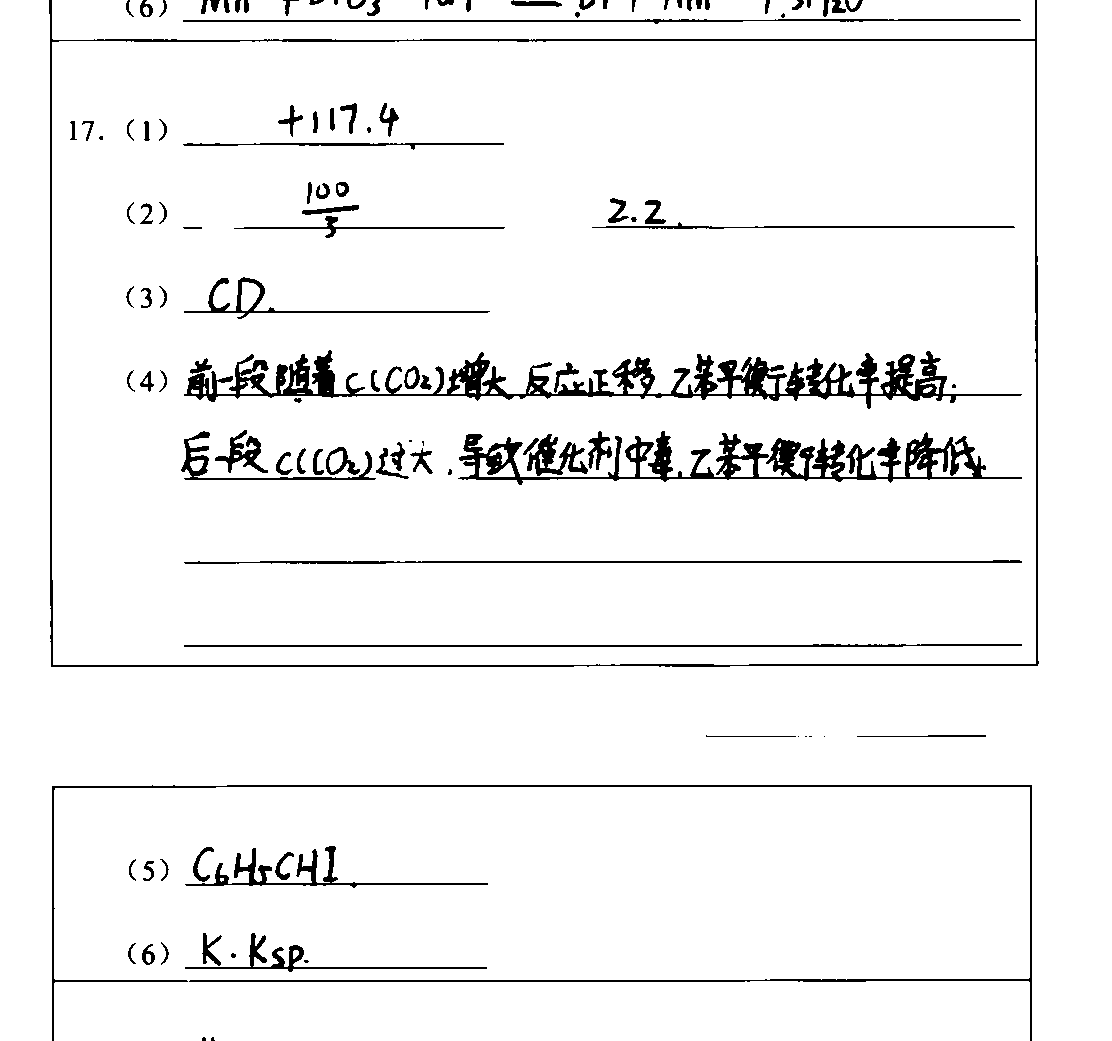 (6)
17. (1) +117.4
(2) 100/3 2.2.
(3) CD.
(4) 前一段随着 C(CO₂)增大,反应正移,乙苯平衡转化率提高;
后一段 C(CO₂)过大,导致催化剂中毒,乙苯平衡转化率降低.
(5) C₆H₅CHI.
(6) K·Ksp.